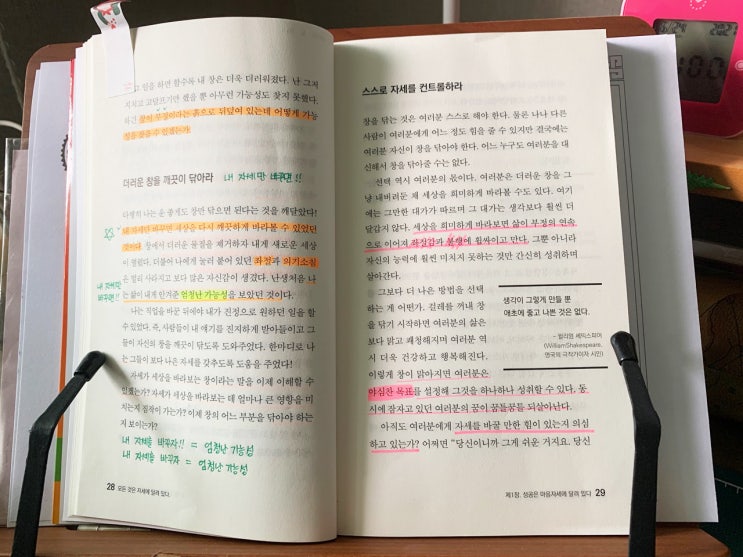 고 일을 하면 할수록 내 창은 더욱 더러워졌다. 난 그저
지치고 고달프기만 했을 뿐 아무런 가능성도 찾지 못했다.
하긴 삶이 부정이라는 흙으로 뒤덮여 있는데 어떻게 가능
성을 찾을 수 있겠는가.
더러운 창을 깨끗이 닦아라
내 자세만 바꾸면!!
다행히 나는 운 좋게도 창만 닦으면 된다는 것을 깨달았다!
내 자세만 바꾸면 세상을 다시 깨끗하게 바라볼 수 있었던
것이다. 창에서 더러운 물질을 제거하자 내게 새로운 세상
이 펼쳤다. 더불어 나에게 눌러 붙어 있던 좌절과 의기소침
은 멀리 사라지고 보다 많은 자신감이 생겼다. 난생처음 나
는 삶이 내게 안겨준 엄청난 가능성을 보았던 것이다.
내 자세만
바꾸면!!
나는 직업을 바꾼 뒤에야 내가 진정으로 원하던 일을 할
수 있었다. 즉, 사람들이 내 얘기를 진지하게 받아들이고 그
들이 자신의 창을 깨끗이 닦도록 도와주었다. 한마디로 나
는 그들이 보다 나은 자세를 갖추도록 도움을 주었다!
자세가 세상을 바라보는 창이라는 말을 이제 이해할 수
있겠는가? 자세가 세상을 바라보는 데 얼마나 큰 영향을 미
치는지 짐작이 가는가? 이제 창의 어느 부분을 닦아야 하는
지 보이는가?
내 자세를 바꾸자!! = 엄청난 가능성
내 자세를 바꾸자 = 엄청난 가능성
28 모든 것은 자세에 달려 있다.
스스로 자세를 컨트롤하라
창을 닦는 것은 여러분 스스로 해야 한다. 물론 나나 다른
사람이 여러분에게 어느 정도 힘을 줄 수 있지만 결국에는
여러분 자신이 창을 닦아야 한다. 어느 누구도 여러분을 대
신해서 창을 닦아줄 수는 없다.
선택 역시 여러분의 몫이다. 여러분은 더러운 창을 그
냥 내버려둔 채 세상을 희미하게 바라볼 수도 있다. 여기
에는 그만한 대가가 따르며 그 대가는 생각보다 훨씬 더
달갑지 않다. 세상을 희미하게 바라보면 삶이 부정의 연속
으로 이어져 좌장감과 불행에 휩싸이고 만다. 그뿐 아니라
자신의 능력에 훨씬 미치지 못하는 것만 간신히 성취하며
살아간다.
그보다 더 나은 방법을 선택
하는 게 어떤가. 걸레를 꺼내 창
을 닦기 시작하면 여러분의 삶은
보다 밝고 쾌청해지며 여러분 역
시 더욱 건강하고 행복해진다.
이렇게 창이 맑아지면 여러분은
야심찬 목표를 설정해 그것을 하나하나 성취할 수 있다. 동
시에 잠자고 있던 여러분의 꿈이 꿈틀꿈틀 되살아난다.
아직도 여러분에게 자세를 바꿀 만한 힘이 있는지 의심
하고 있는가? 어쩌면 "당신이니까 그게 쉬운 거지요. 당신
생각이 그렇게 만들 뿐
애초에 좋고 나쁜 것은 없다.
- 윌리엄 셰익스피어
(WilliamShakespeare,
영국의 극작가이자 시인)
제1장. 성공은 마음자세에 달려 있다 29